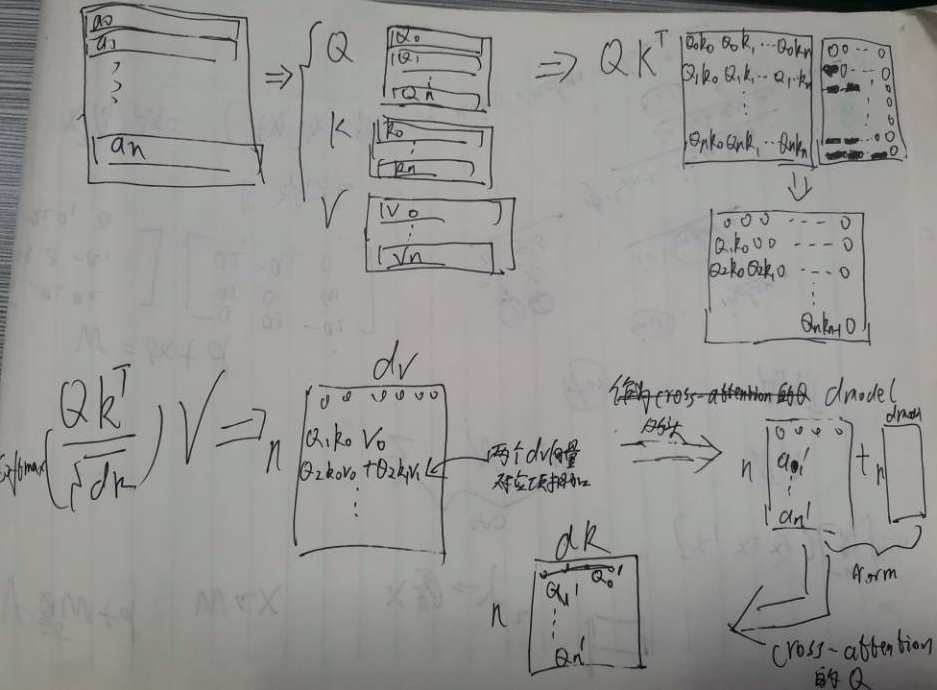 a0
a1
an
⇒
Q
Q0
Q1
⋮
Qn
K
k0
kn
V
V0
⋮
Vn
⇒ QK^T
Q0k0 Q0k1 ... Q0kn
Q1k0 Q1k1 ... Q1kn
⋮
Qnk0 Qnk1 ... Qnkn
0 0 -- 0
0 -- 0
0
0
0
0
⇓
0 0 0 ---- 0
Q1k0 0 0 ---- 0
Q2k0 Q2k1 0 ---- 0
⋮
Qnkn-1 0
softmax(QK^T/√dk) V ⇒
dv
n
0 0 0 0 0 0
Q1k0 V0
Q2k0V0 + Q2k1V1
⋮
两个dv向量
对应项相加
作为cross-attention的Q
dmodel
n
0 0 0 0
a1'
⋮
an'
+
n
dmodel
norm
cross-attention
的Q
dk
n
Q0'
Q1'
⋮
Qn'